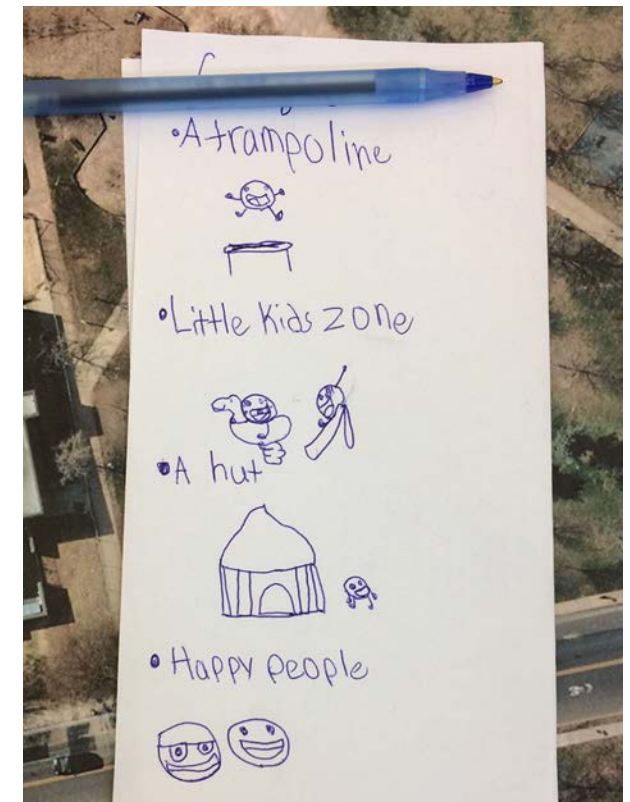 •A trampoline
•Little Kids zone
•A hut
•Happy people